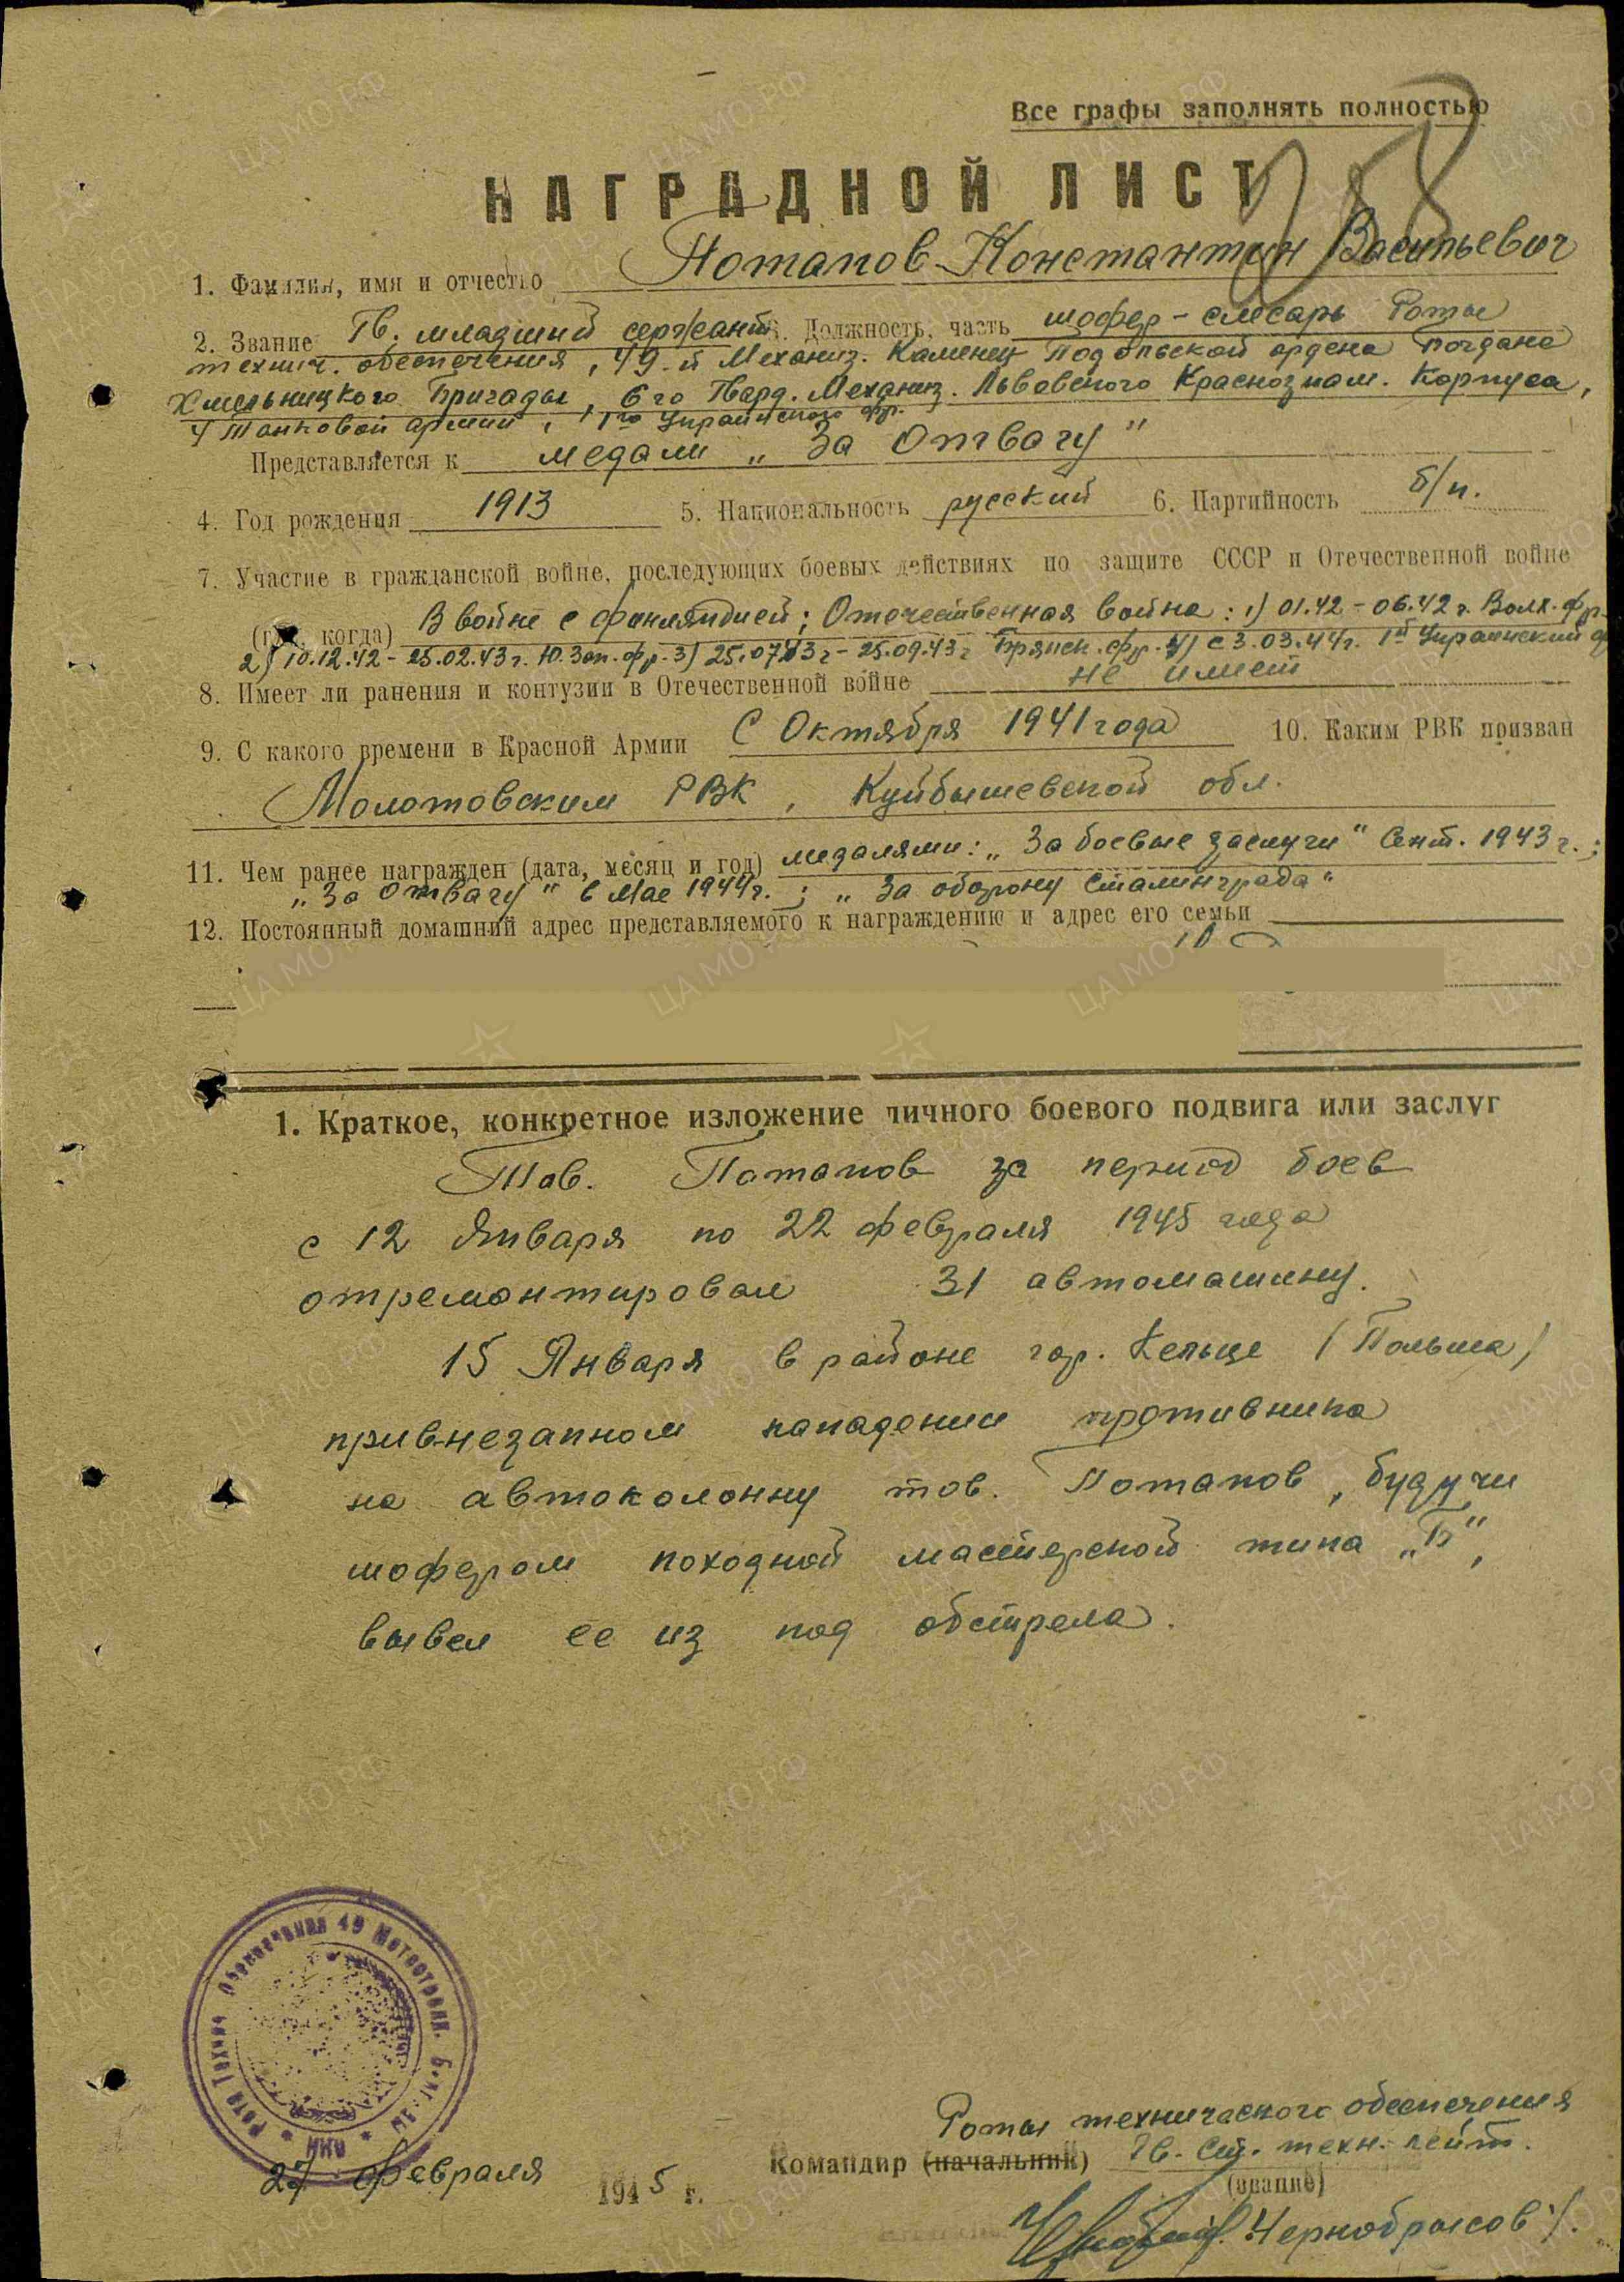 Все графы заполнять полностью
НАГРАДНОЙ ЛИСТ
1. Фамилия, имя и отчество Потапов Константин Васильевич
2. Звание Гв. младший сержант 3. Должность, часть шофер-слесарь Роты
технич. обеспечения, 49-й Механиз. Каменец Подольской ордена Богдана
Хмельницкого Бригады, 6го Гвард. Механиз. Львовского Краснознам. Корпуса,
4 Танковой армии, 1го Украинского фр.
Представляется к медали „За Отвагу"
4. Год рождения 1913 5. Национальность русский 6. Партийность б/п.
7. Участие в гражданской войне, последующих боевых действиях по защите СССР и Отечественной войне
(где, когда) В войне с Финляндией; Отечественная война: 1) 01.42 - 06.42 г. Волх. фр.
2) 10.12.42 - 25.02.43 г. Ю.Зап. фр. 3) 25.07.43 г - 25.09.43 г Брянск. фр. 4) с 3.03.44 г. 1й Украинский ф
8. Имеет ли ранения и контузии в Отечественной войне не имеет
9. С какого времени в Красной Армии С Октября 1941 года 10. Каким РВК призван
Молотовским РВК, Куйбышевской обл.
11. Чем ранее награжден (дата, месяц и год) медалями: „За боевые заслуги" Сент. 1943 г.;
„За Отвагу" в Мае 1944 г.; „За оборону Сталинграда"
12. Постоянный домашний адрес представляемого к награждению и адрес его семьи
1. Краткое, конкретное изложение личного боевого подвига или заслуг
Тов. Потапов за период боев
с 12 Января по 22 февраля 1945 года
отремонтировал 31 автомашину.
15 Января в районе гор. Кельце (Польша)
при внезапном нападении противника
на автоколонну тов. Потапов, будучи
шофером походной мастерской типа „Б",
вывел ее из под обстрела.
Рота Технич Обеспечения 49 Мотострелк. Б-ки НКО
Роты технического обеспечения
Командир (начальник) Гв. ст. техн. лейт.
(звание)
27 февраля 1945 г.
/Чернобрысов/.
ЦА МО РФ
ПАМЯТЬ НАРОДА